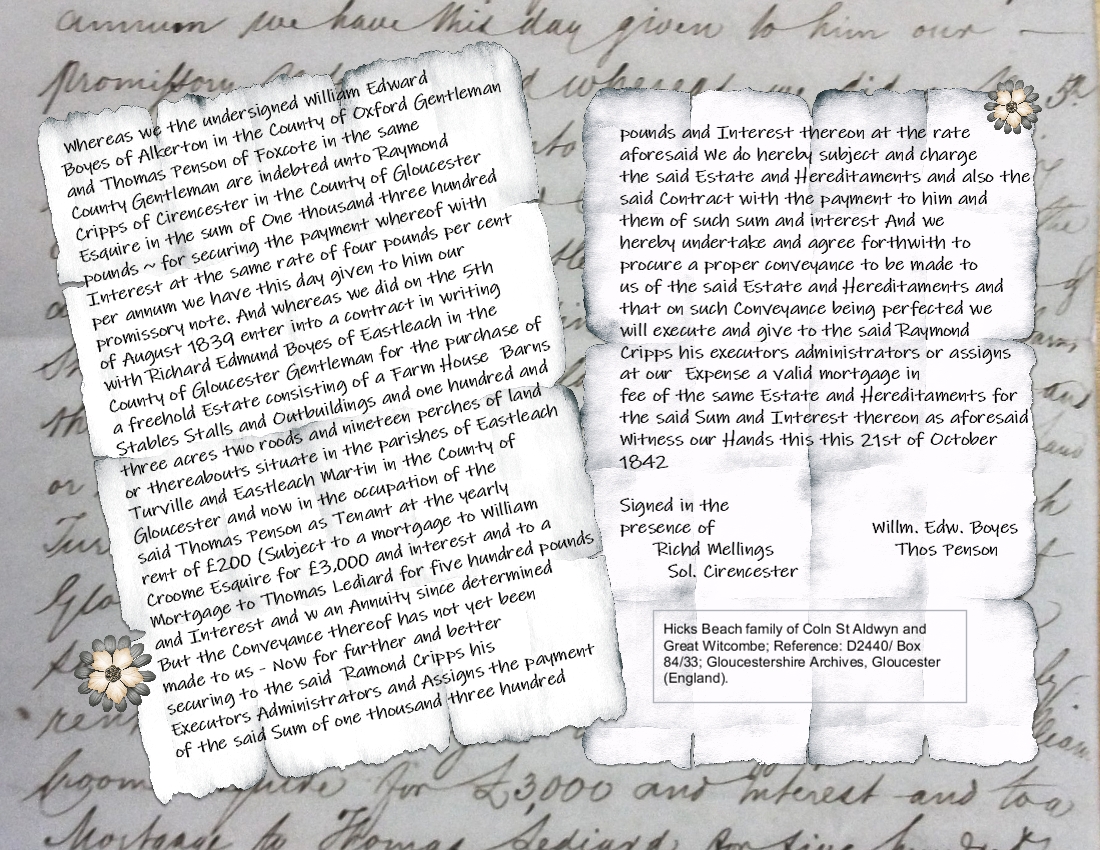 annum we have this day given to him our
whereas we the undersigned William Edward
Boyes of Alkerton in the County of Oxford Gentleman
and Thomas Penson of Foxcote in the same
County Gentleman are indebted unto Raymond
Cripps of Cirencester in the County of Gloucester
Esquire in the sum of One thousand three hundred
pounds ~ for securing the payment whereof with
Interest at the same rate of four pounds per cent
per annum we have this day given to him our
promissory note. And whereas we did on the 5th
of August 1839 enter into a contract in writing
with Richard Edmund Boyes of Eastleach in the
County of Gloucester Gentleman for the purchase of
a freehold Estate consisting of a Farm House Barns
Stables Stalls and Outbuildings and one hundred and
three acres two roods and nineteen perches of land
or thereabouts situate in the parishes of Eastleach
Turville and Eastleach Martin in the County of
Gloucester and now in the occupation of the
said Thomas Penson as Tenant at the yearly
rent of £200 (Subject to a mortgage to William
Croome Esquire for £3,000 and interest and to a
Mortgage to Thomas Lediard for five hundred pounds
and Interest and w an Annuity since determined
But the Conveyance thereof has not yet been
made to us - Now for further and better
securing to the said Ramond Cripps his
Executors Administrators and Assigns the payment
of the said Sum of one thousand three hundred
pounds and Interest thereon at the rate
aforesaid We do hereby subject and charge
the said Estate and Hereditaments and also the
said Contract with the payment to him and
them of such sum and interest And we
hereby undertake and agree forthwith to
procure a proper conveyance to be made to
us of the said Estate and Hereditaments and
that on such Conveyance being perfected we
will execute and give to the said Raymond
Cripps his executors administrators or assigns
at our Expense a valid mortgage in
fee of the same Estate and Hereditaments for
the said Sum and Interest thereon as aforesaid
witness our Hands this this 21st of October
1842
Signed in the
presence of
Richd Mellings
Sol. Cirencester
Willm. Edw. Boyes
Thos Penson
Hicks Beach family of Coln St Aldwyn and
Great Witcombe; Reference: D2440/ Box
84/33; Gloucestershire Archives, Gloucester
(England).
for £3,000 and Interest and to a
Mortgage to Thomas Lediard for five